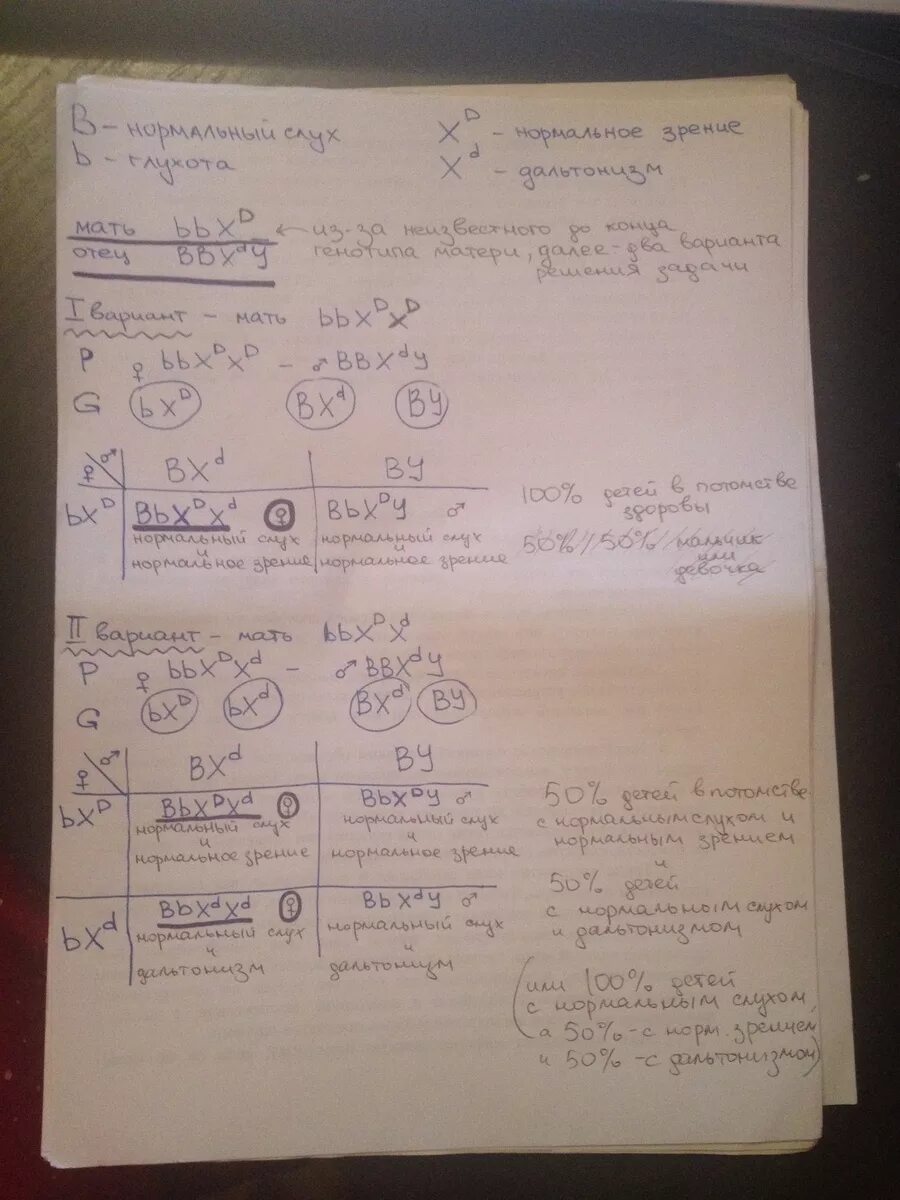 B – нормальный слух X^D – нормальное зрение
b – глухота X^d – дальтонизм
мать bbX^D_ ← из-за неизвестного до конца
отец BBX^dY генотипа матери, далее – два варианта
решения задачи
I вариант – мать bbX^DX^D
P ♀ bbX^DX^D – ♂ BBX^dY
G bX^D BX^d BY
♀ ♂ BX^d BY
bX^D BbX^DX^d ♀ BbX^DY ♂
нормальный слух нормальный слух
и и
нормальное зрение нормальное зрение
100% детей в потомстве
здоровы
50% // 50% мальчик
или
девочка
II вариант – мать bbX^DX^d
P ♀ bbX^DX^d – ♂ BBX^dY
G bX^D bX^d BX^d BY
♀ ♂ BX^d BY
bX^D BbX^DX^d ♀ BbX^DY ♂
нормальный слух нормальный слух
и и
нормальное зрение нормальное зрение
bX^d BbX^dX^d ♀ BbX^dY ♂
нормальный слух нормальный слух
и и
дальтонизм дальтонизм
50% детей в потомстве
с нормальным слухом и
нормальным зрением
и
50% детей
с нормальным слухом
и дальтонизмом
(или 100% детей
с нормальным слухом,
а 50% - с норм. зрением
и 50% - с дальтонизмом)